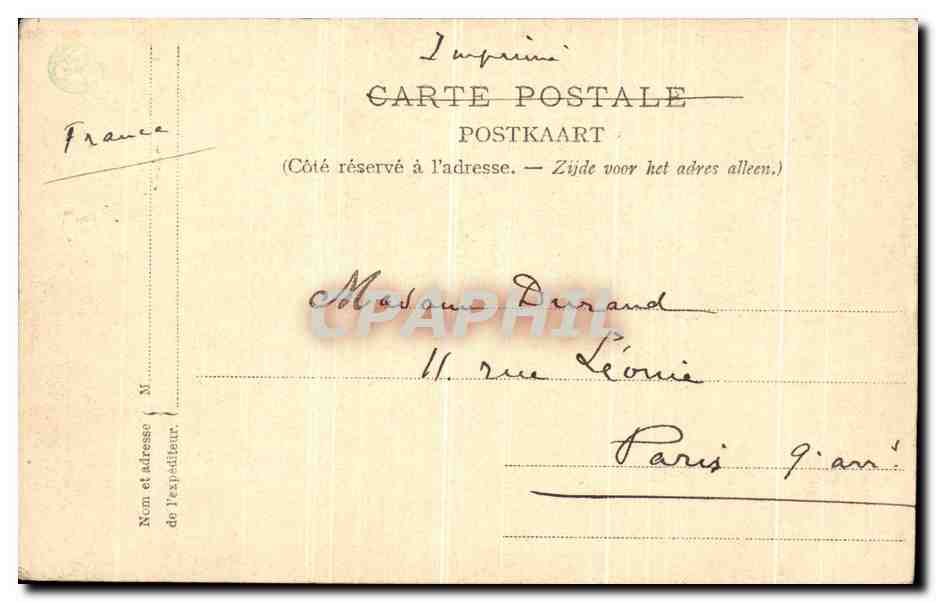 Imprimé
CARTE POSTALE
POSTKAART
(Côté réservé à l'adresse. — Zijde voor het adres alleen.)
France
Madame Durand
CPAPHIL
11. rue Léonie
Paris 9. arrt
Nom et adresse de l'expéditeur. } M